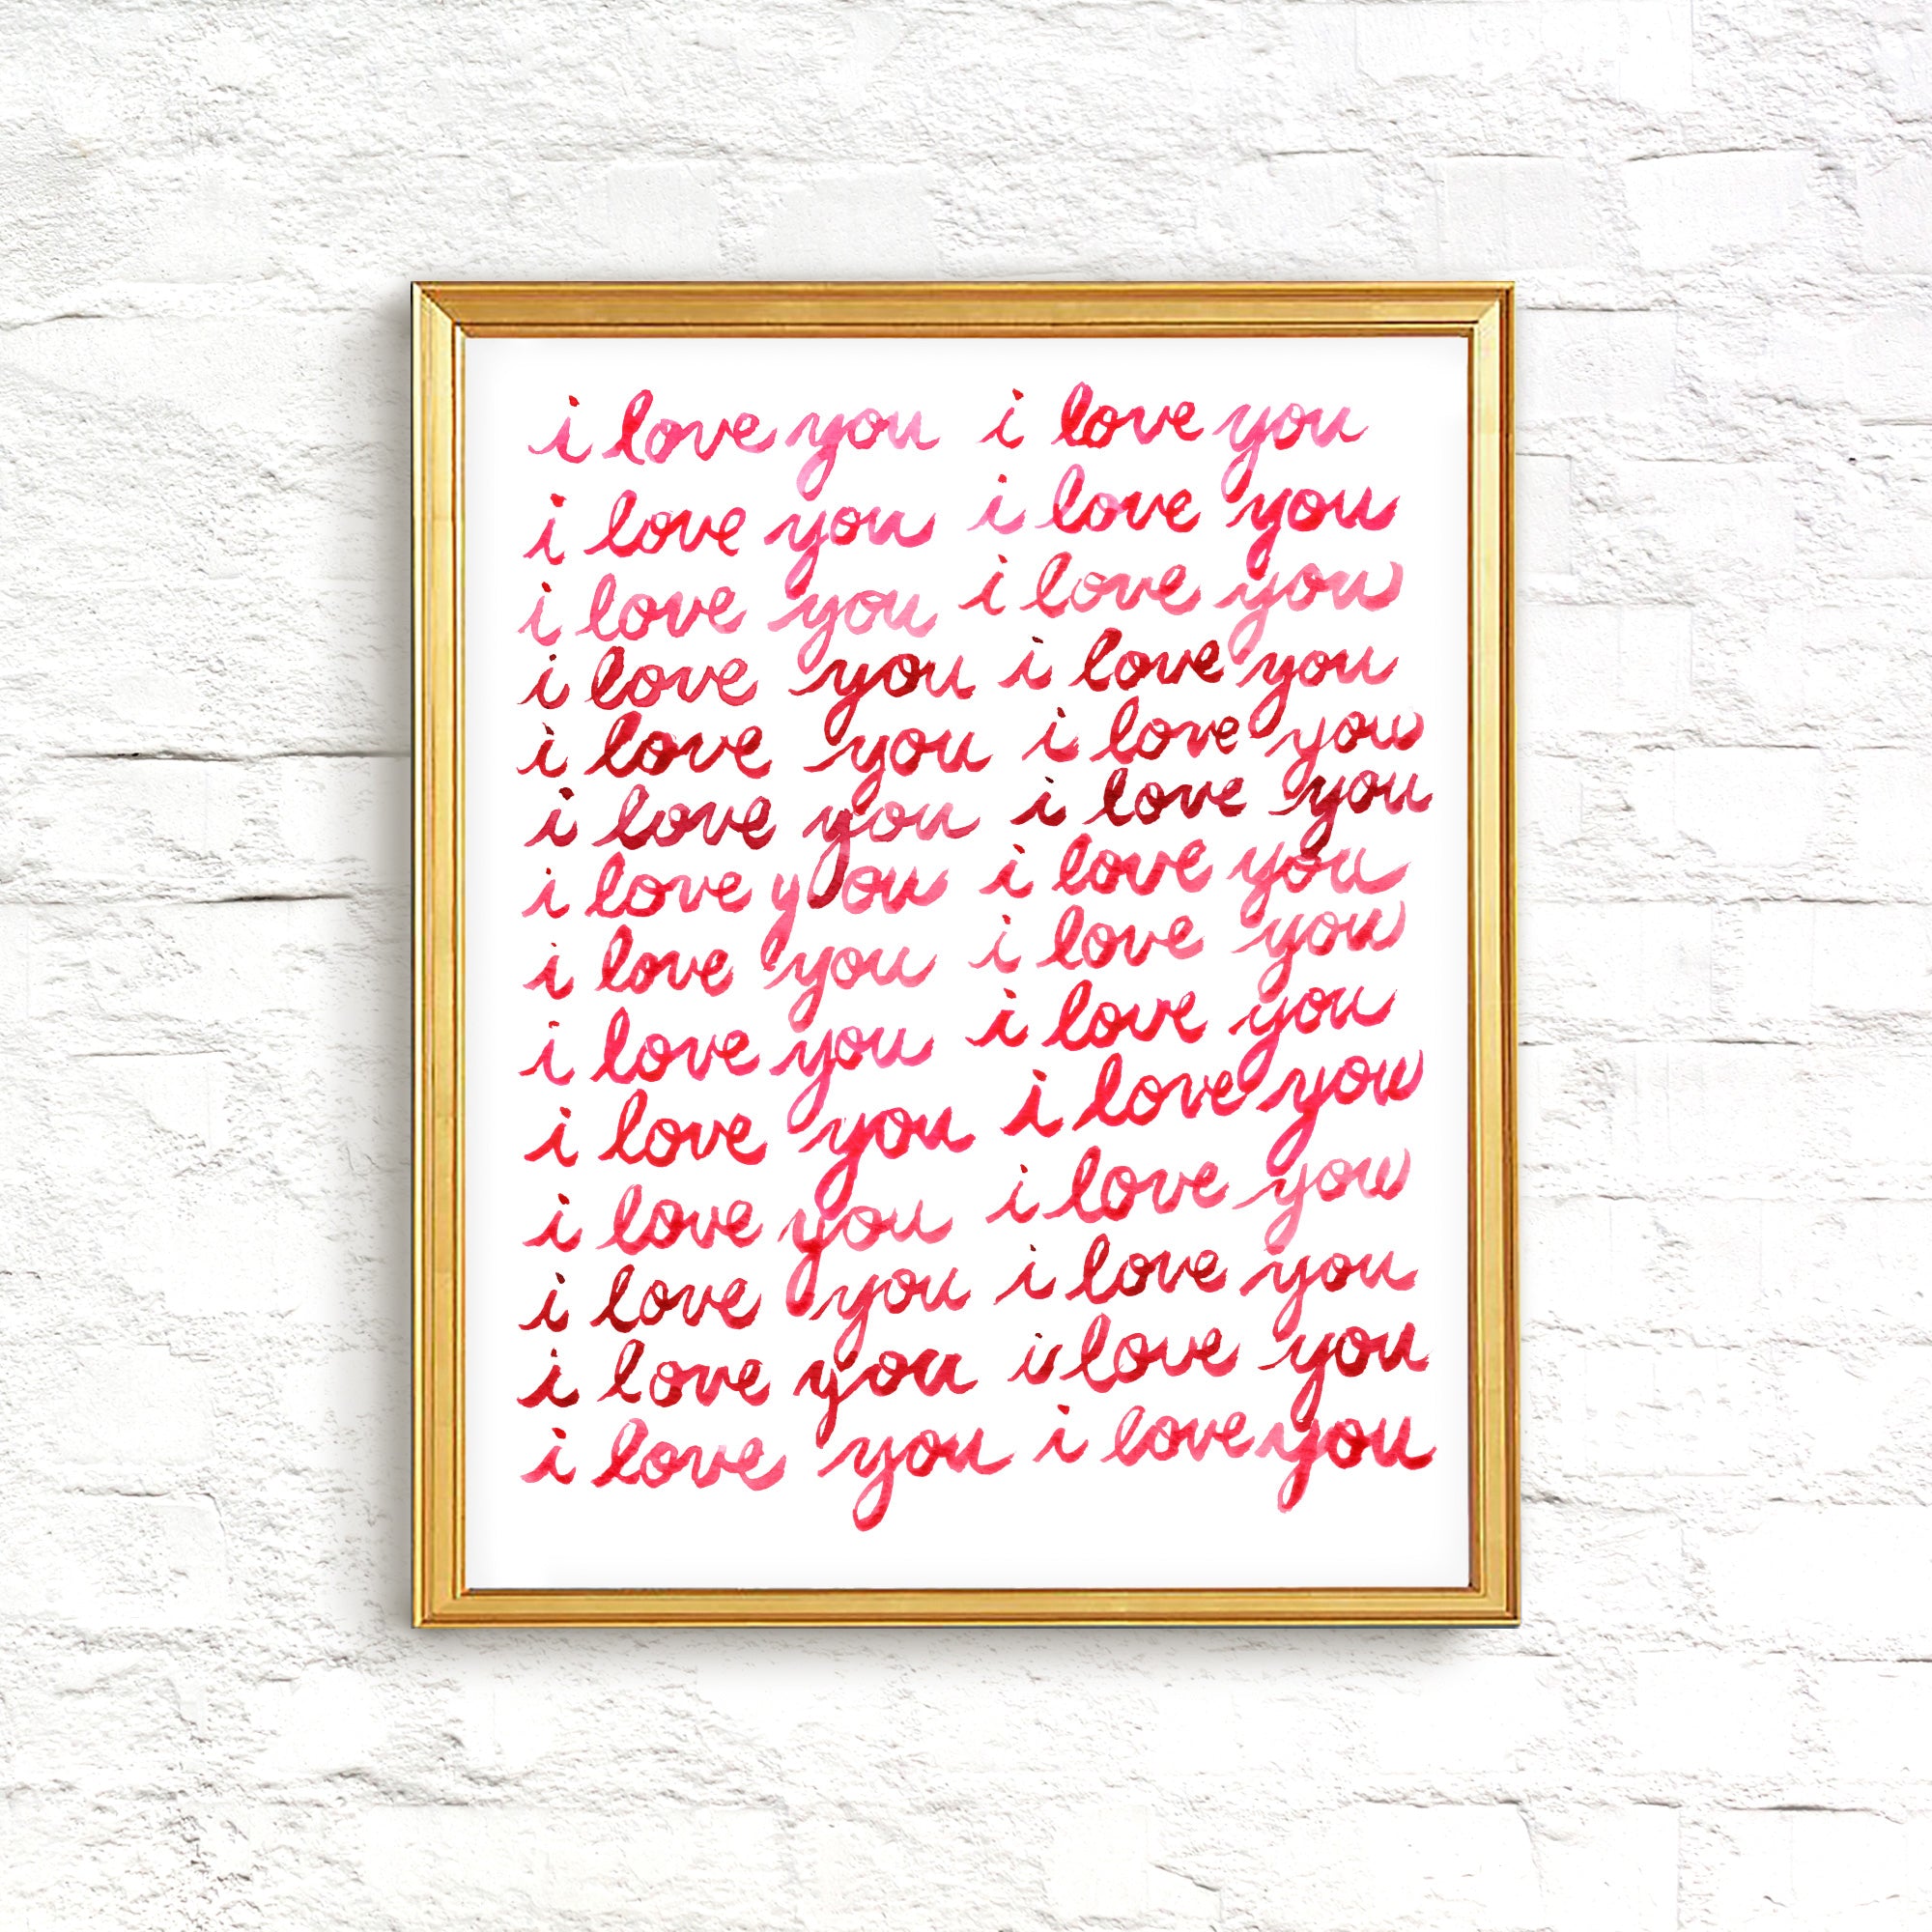 i love you i love you
i love you i love you
i love you i love you
i love you i love you
i love you i love you
i love you i love you
i love you i love you
i love you i love you
i love you i love you
i love you i love you
i love you i love you
i love you i love you
i love you i love you
i love you i love you